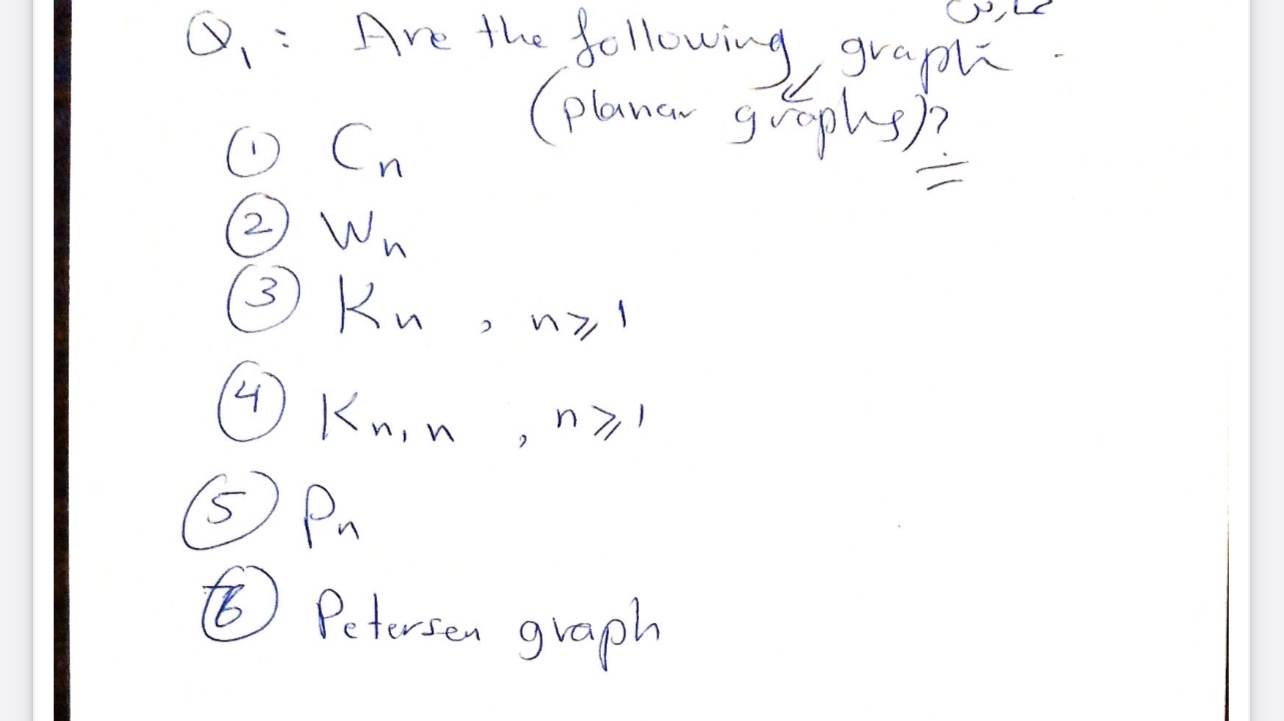 Q₁: Are the following graph
(planar graphs)?
① Cn
② Wn
③ Kn , n ⩾ 1
④ Kn,n , n ⩾ 1
⑤ Pn
⑥ Petersen graph